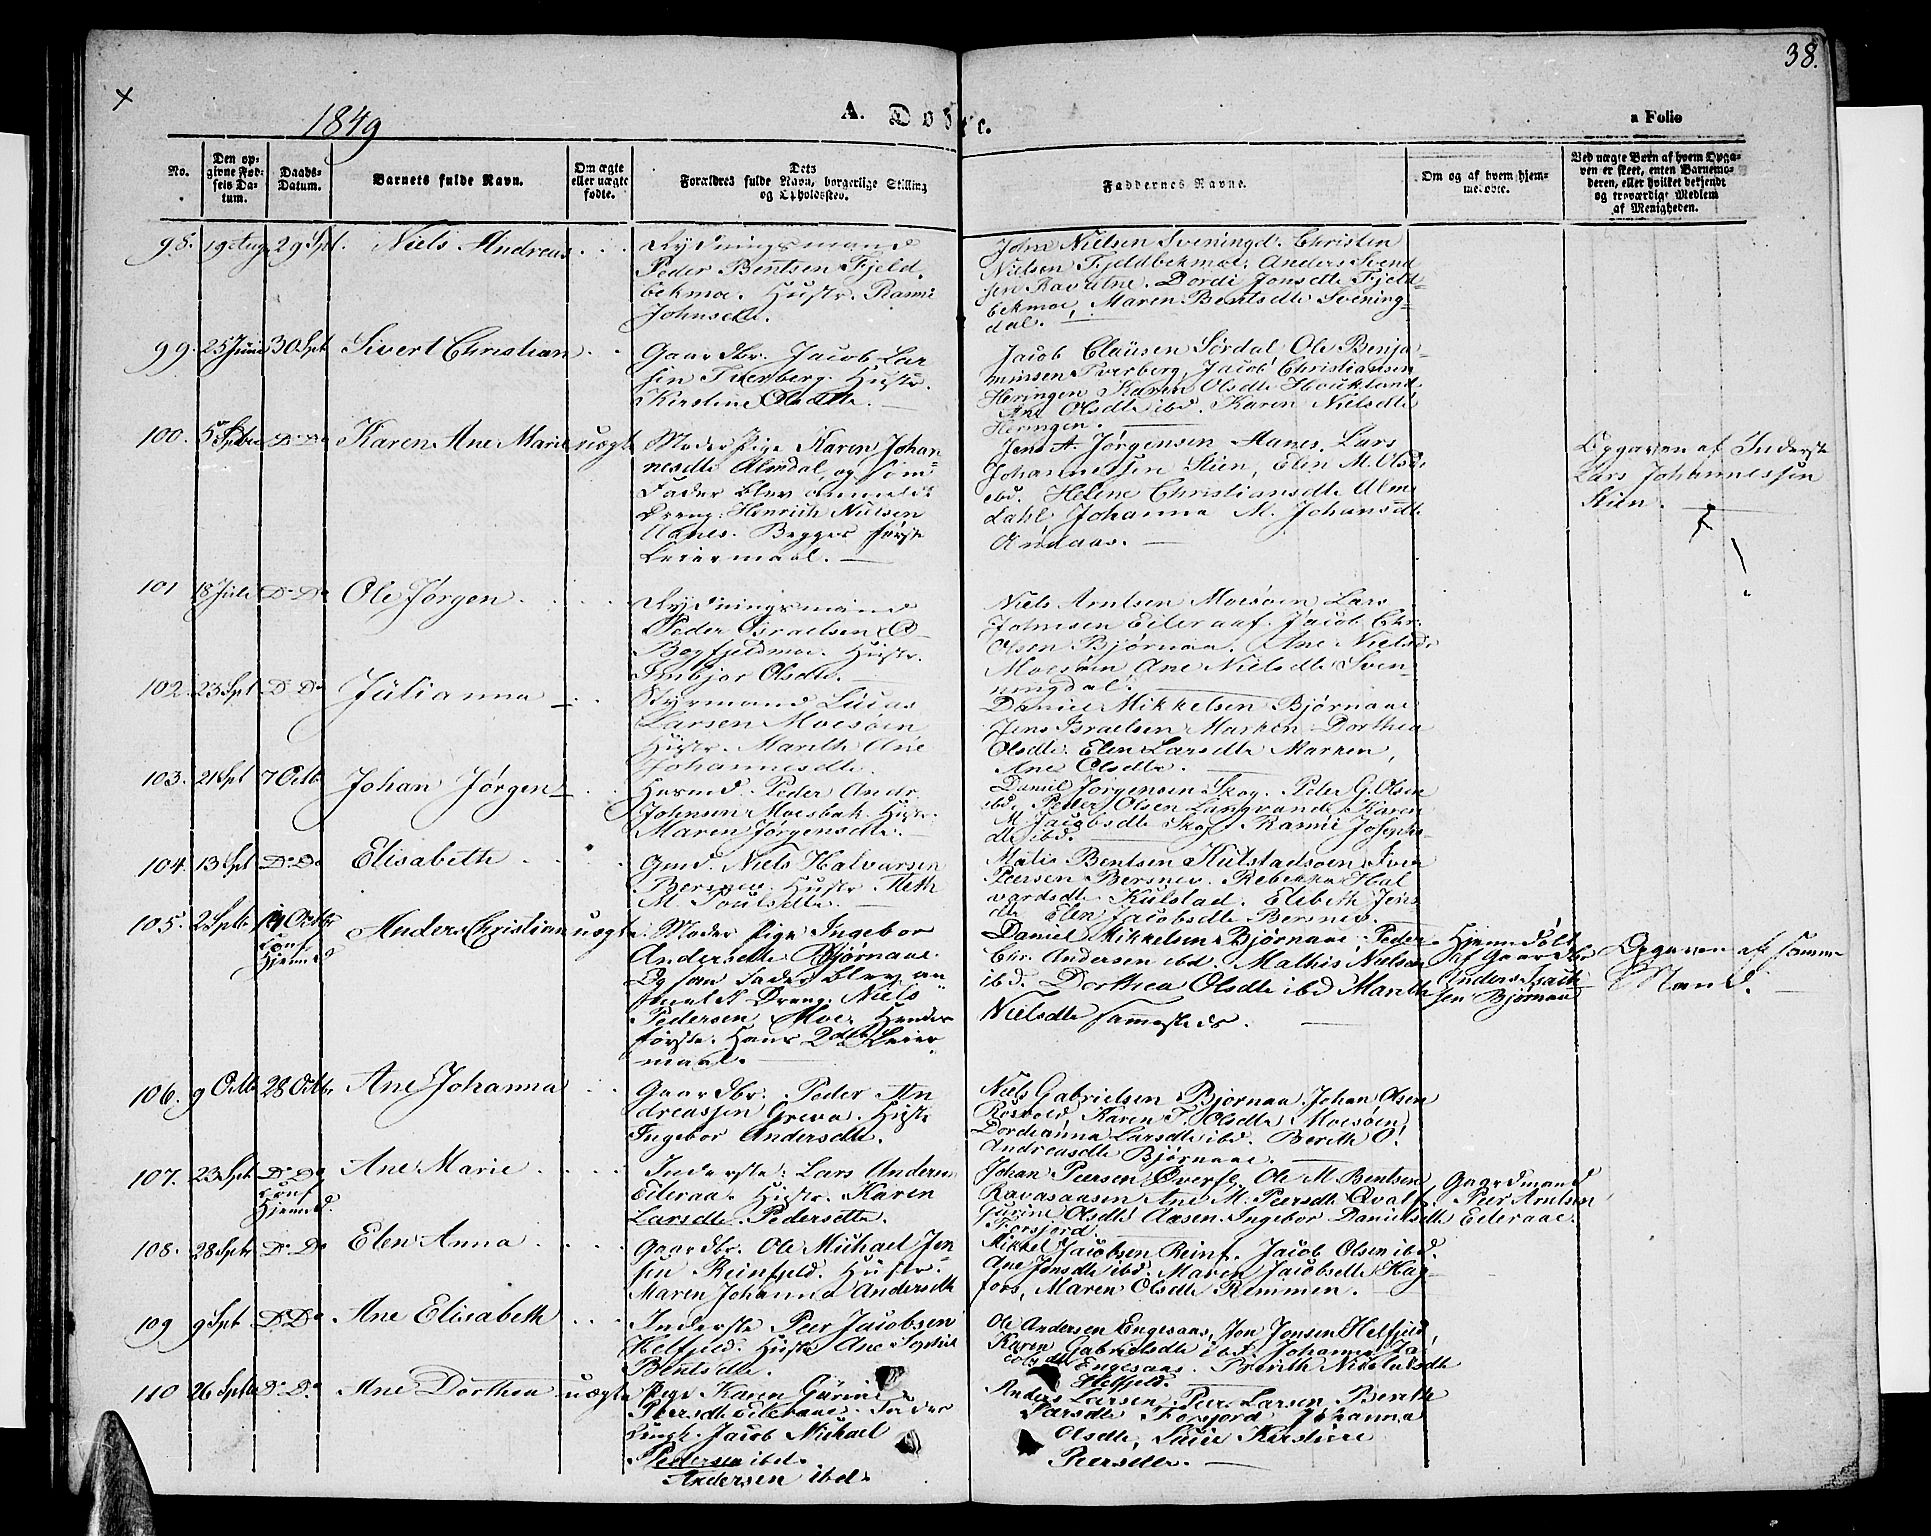 38.
1849
A. Døbte.
a Folio
No.
Den op-
givne Fød-
sels Da-
tum.
Daabs-
Datum.
Barnets fulde Navn.
Om ægte
eller uægte
fødte.
Dets
Forældres fulde Navn, borgerlige Stilling
og Opholdssted.
Faddernes Navne.
Om og af hvem hjem-
medøbte.
Ved uægte Børn af hvem Opga-
ven er skeet, enten Barnemo-
deren, eller hvilket bekjendt
og troværdigt Medlem
af Menigheden.
98. 19 Aug 29 Spt. Niels Andreas
Rydningsmand
Peder Bentsen Fjeld
bekmoe. Hustr. Rami
Johnsdtr.
John Nielsen Sveningd. Christen
Nielsen Fjeldbekmoe, Anders Svend
sen Dordi Jonsdtr Fjeld-
bekmoe, Maren Bentsdtr Svening-
dal.
99. 25 Juni 30 Spt Sivert Christian
Gaardbr. Jacob Lar
sen Tverberg. Hustr.
Kirstine Olsdtr.
Jacob Clausen Sørdal Ole Benja-
minsen Tverberg, Jacob Christiansen
Heringen Karen Olsdtr Houkland
Ane Olsdtr ibd. Karen Nielsdtr
Heringen.
100. 5 Sptbr Do Do Karen Ane Marie uægte
Moder Pige Karen Johan
nesdtr Almdal, og som
Fader blev anmeldt
Dreng: Henrich Nielsen
Aanes. Begges første
Leiermaal.
Jens A. Jørgensen Aanes, Lars
Johannessen Stien, Elen M. Olsdtr
ibd. Helene Christiansdtr Alm
dahl, Johanna M. Johansdtr
Opgaven af Inderst
Lars Johannessen
Stien.
101 18 Juli Do Do Ole Jørgen
Rydningsmand
Peder Israelsen
Bogfjeldmoe. Hustr.
Inbjor Olsdtr.
Niels Arntsen Moesøen, Lars
Johnsen Eiteraaf. Jacob Chr.
Olsen Bjørnaa. Ane Nielsdr
Moesøen, Ane Nielsdtr Sven-
ningdal.
102. 23 Spt Do Do Julianna
Styrmand Lucas
Larsen Moesøen
Hustr. Marith Ane
Johannesdtr.
Daniel Mikkelsen Bjørnaae
Jens Israelsen Marken Dorthea
Olsdtr. Elen Larsdtr Marken,
Ane Olsdtr.
103. 21 Spt 7 Octb Johan Jørgen
Huusmd. Peder Andr.
Johnsen Moesbak. Hustr.
Maren Jørgensdtr.
Daniel Jørgensen Skog. Peder G. Olsen
ibd. Peder Olsen Langvand, Karen
M. Jacobsdtr Skog, Rami Josephs-
dtr ibd.
104. 13 Spt Do Do Elisabeth
Gmd. Niels Halvarsen
Bersnev. Hustr. Meth
M. Poulsdtr.
Matis Bentsen Kulstadsøen, Iver
Peersen Bersnev. Rebekka Hal
vardsdtr Kulstad. Elsbeth Jens
dtr Elen Jacobsdtr Bersnev.
105. 2 Sptb 14 Octbr Anders Christian uægte
conf.
Hjemmed
Moder Pige Ingebor
Andersdtr Bjørnaae.
Og som Fader blev an-
meldt Dreng. Niels
Pedersen Moe. Hendes
første. Hans 2det Leier
maal.
Daniel Mikkelsen Bjørnaae, Peder
Chr. Andersen ibd. Mathis Nielsen
ibd. Dorthea Olsdtr ibd Marith
Nielsdtr sammesteds.
Hjemmedøbt
af Gaardbr
Anders Isach
sen Bjørnaa
Opgaven af samme
Mand.
106. 9 Octb 28 Octbr. Ane Johanna
Gaardbr. Peder An
dreassen Greva. Hustr
Ingebor Andersdtr.
Niels Gabrielsen Bjørnaa, Johan Olsen
Rosvold, Karen T. Olsdtr Moesøen,
Dordeanna Larsdtr ibd. Berith O.
Andreasdtr Bjørnaae.
107. 23 Spt Do Do Ane Marie
conf.
Hjemmed.
Inderste. Lars Andersen
Eiteraa. Hustr. Karen
Larsdtr. Pedersdtr.
Johan Peersen Øverse, Ole M. Bentsen
Ravasaasen Ane M. Peersdtr Qvalf
Gurine Olsdtr Aasen. Ingebor Danielsdtr
Forsjord.
Gaardmand
Peer Arntsen
Eiteraae.
108. 28 Sptr Do Do Elen Anna
Gaardbr. Ole Michael Jen-
sen Reinfjeld. Hustr.
Maren Johanna Andersdtr
Mikkel Jacobsen Reinf. Jacob Olsen ibd.
Ane Jensdtr ibd. Maren Jacobsdtr Hag-
fors, Maren Olsdtr Remmen.
109 9 Spt Do Do Ane Elisabeth
Inderste Peer Jacobsen
Helfjeld. Hustr Ane Sophie
Bentsdtr.
Ole Andersen Engesaas, Jon Jonsen Helfjeld,
Karen Gabrielsdtr ibd. Johanna Ja
cobsdtr Engesaas. Berith Nielsdtr
Helfjeld.
110 26 Sptbr Do Do Ane Dorthea uægte
Pige Karen Gurine
Peersdtr Eiteraae. Fader
Ungk. Jacob Michael
Pedersen ibd.
Andersen ibd.
Anders Larsen, Peer Larsen, Berith
Larsdtr Forsjord Johanna
Olsdtr, Lucie Kirstine
Peersdtr.